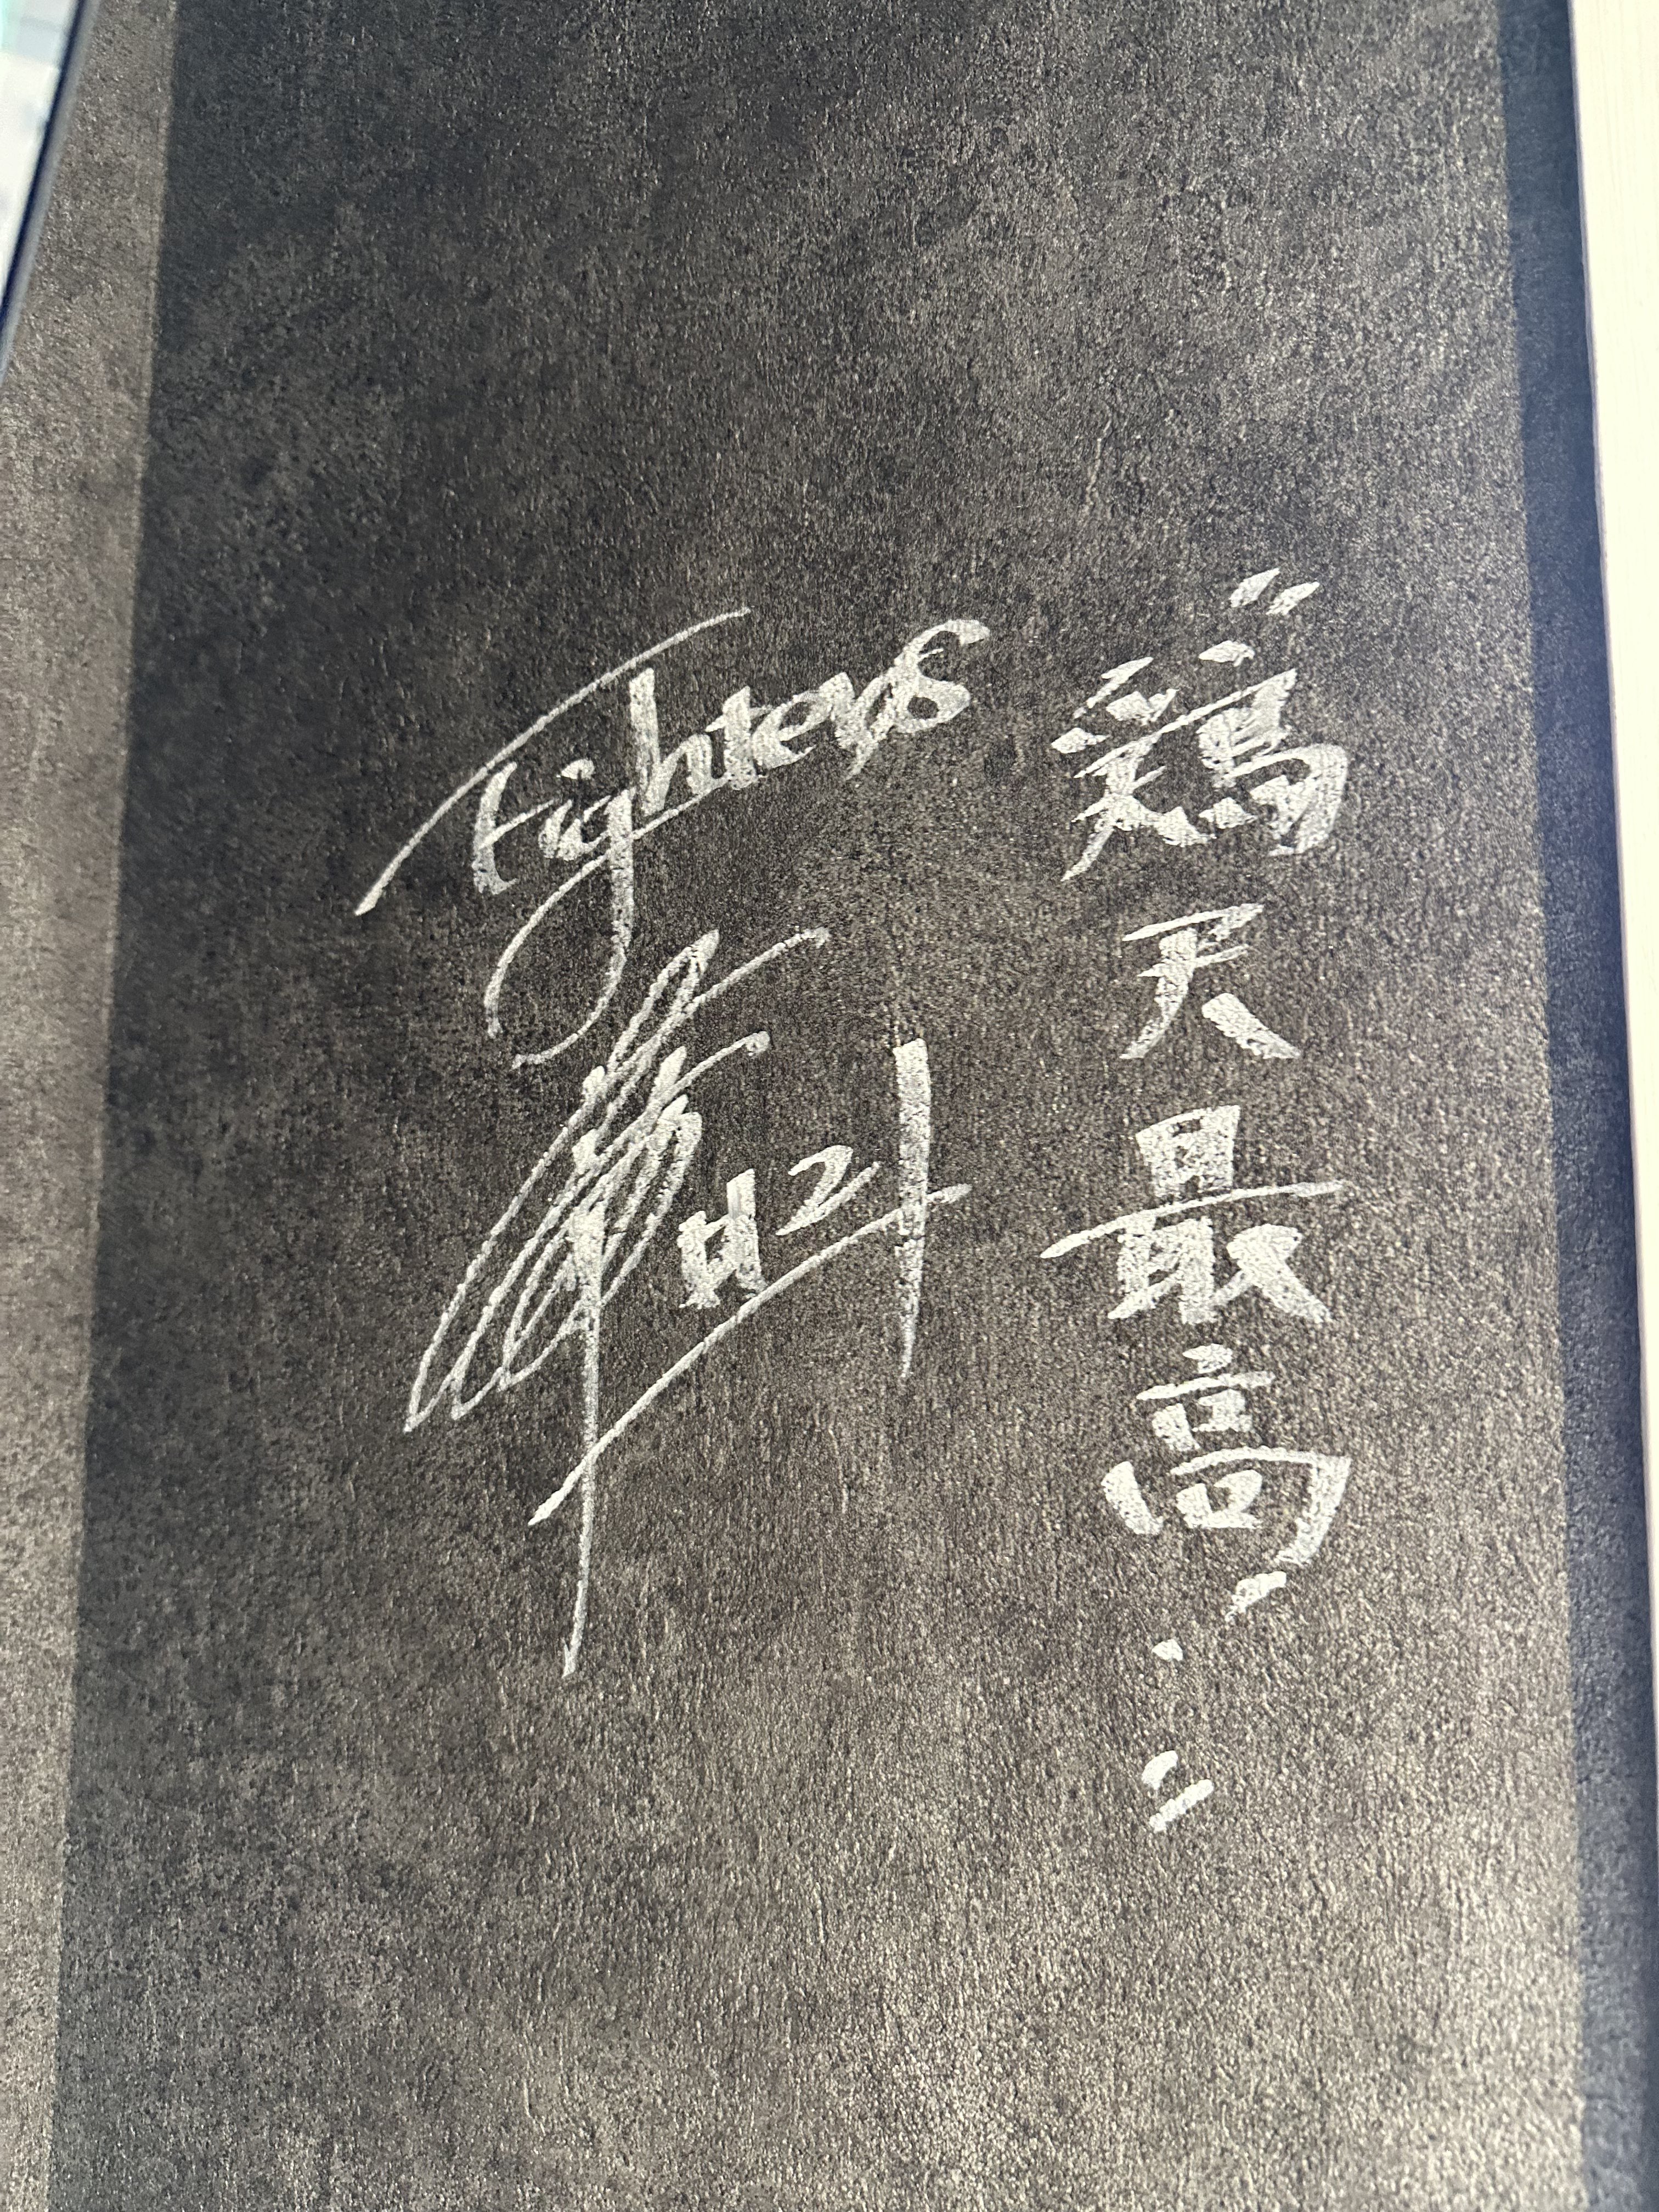 "鶏天最高!"
Fighters